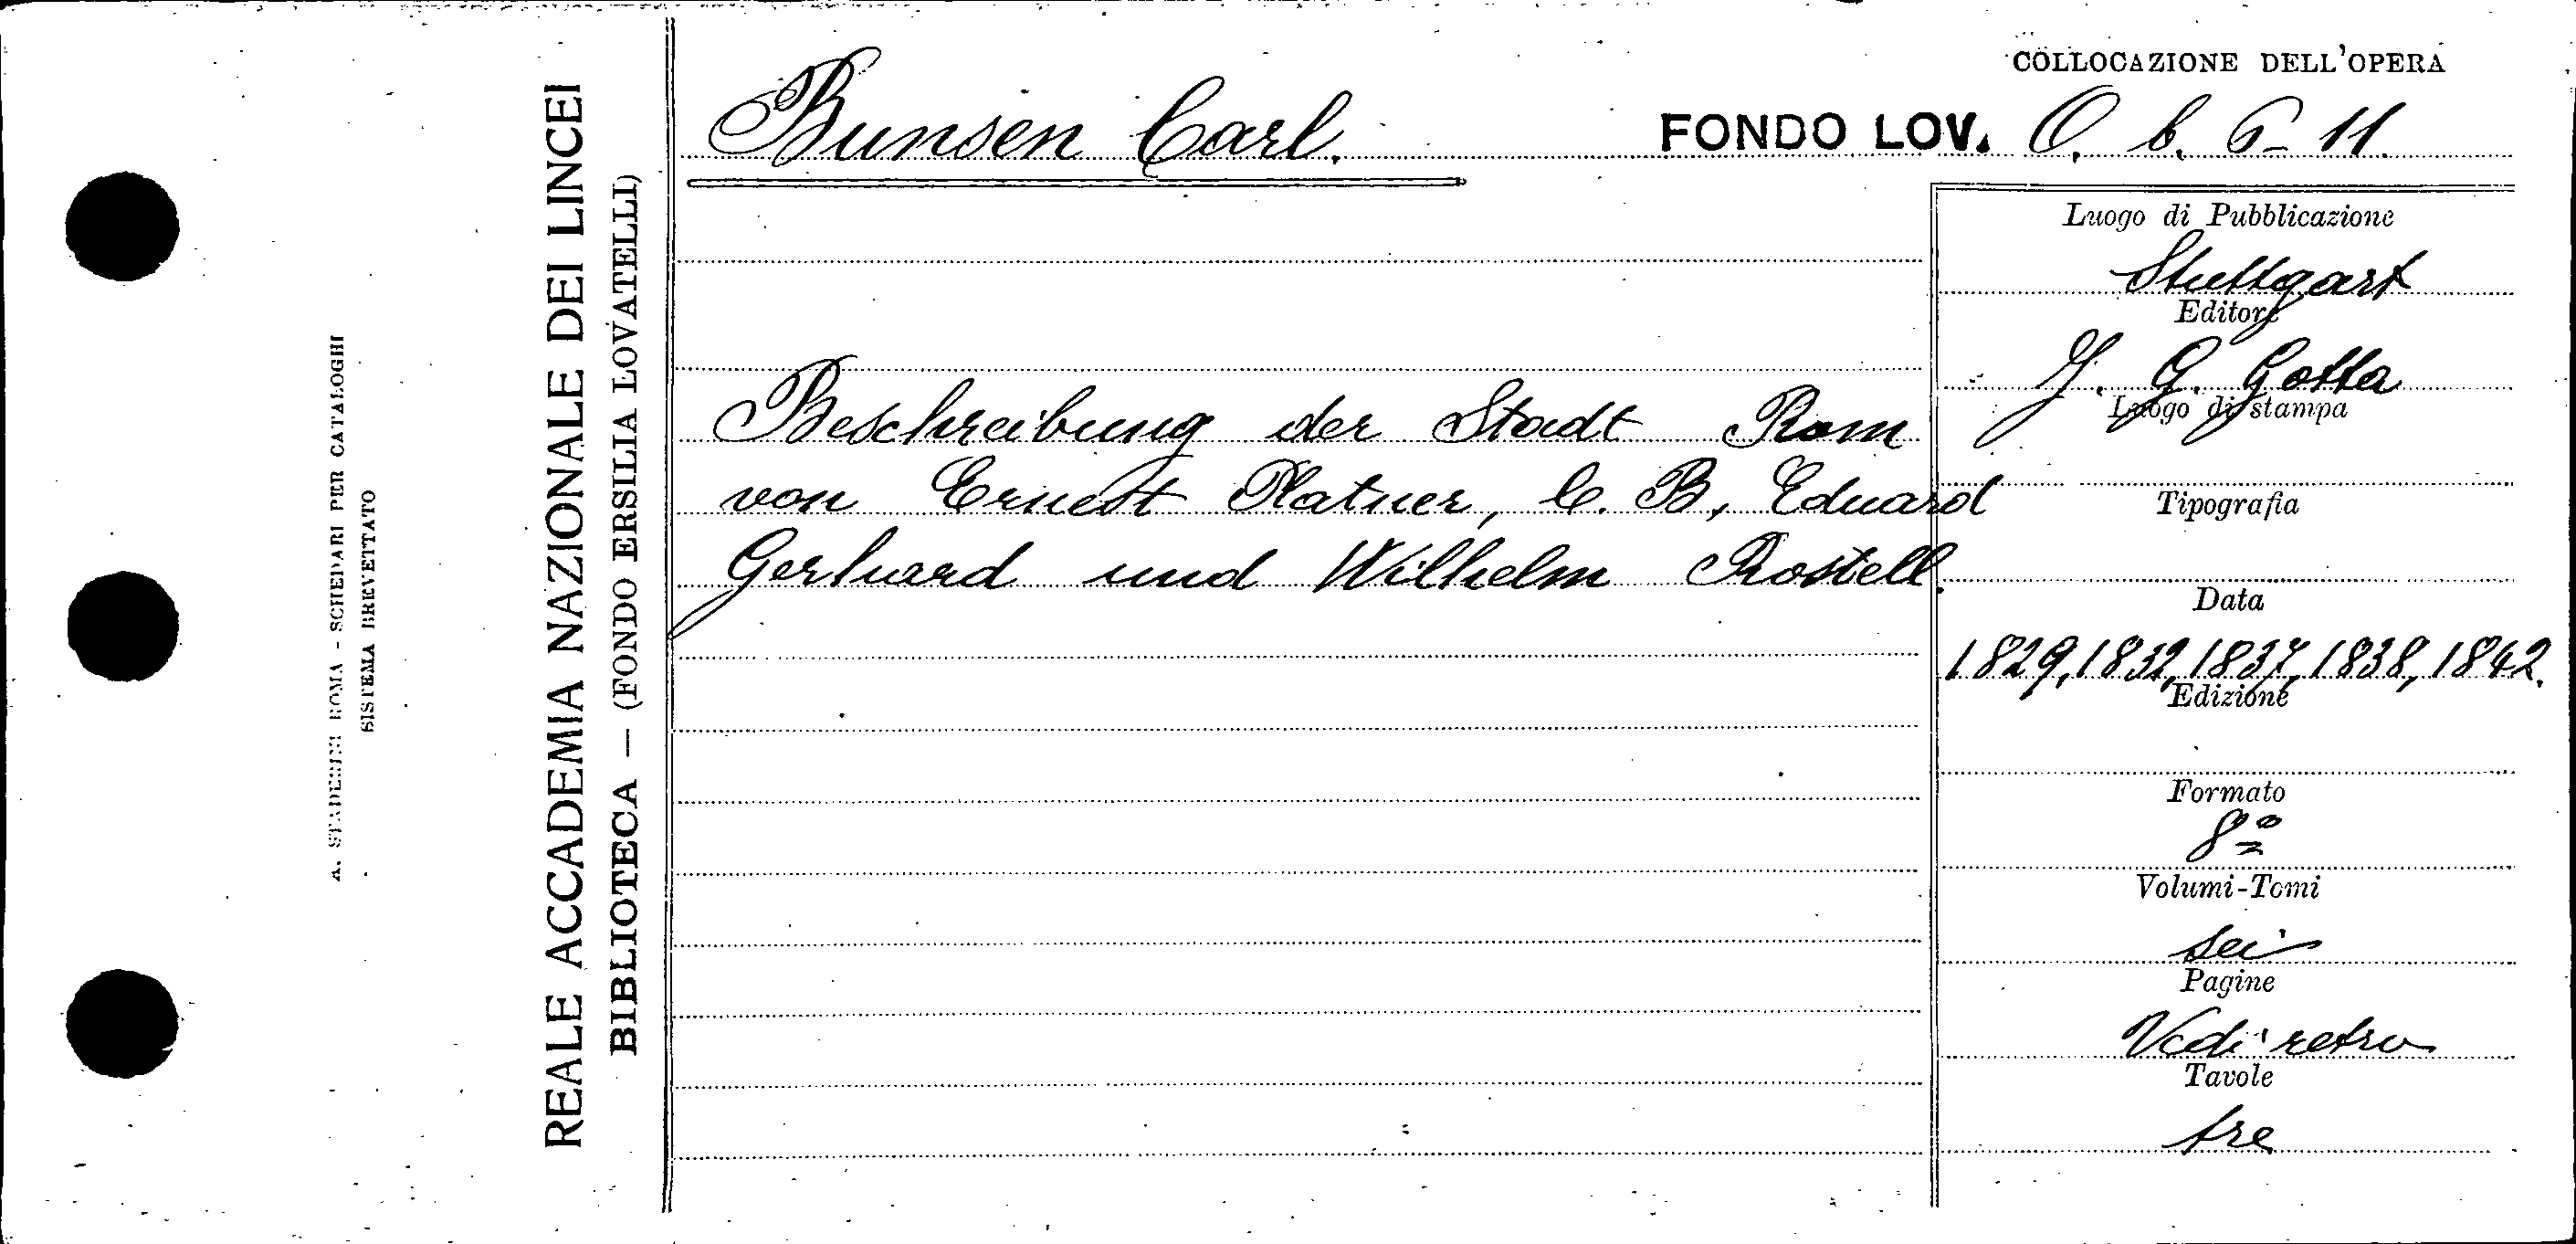 A. STADERINI ROMA - SCHEDARI PER CATALOGHI
SISTEMA BREVETTATO
REALE ACCADEMIA NAZIONALE DEI LINCEI
BIBLIOTECA — (FONDO ERSILIA LOVATELLI)
Bunsen Carl.
COLLOCAZIONE DELL'OPERA
FONDO LOV. O. b. 6-11.
Beschreibung der Stadt Rom
von Ernest Platner, C. B, Eduard
Gerhard und Wilhelm Rostell.
Luogo di Pubblicazione
Stuttgart
Editore
J. G. Gotta
Luogo di stampa
Tipografia
Data
1829, 1832, 1837, 1838, 1842.
Edizione
Formato
8º
Volumi-Tomi
sei
Pagine
Vedi retro
Tavole
tre